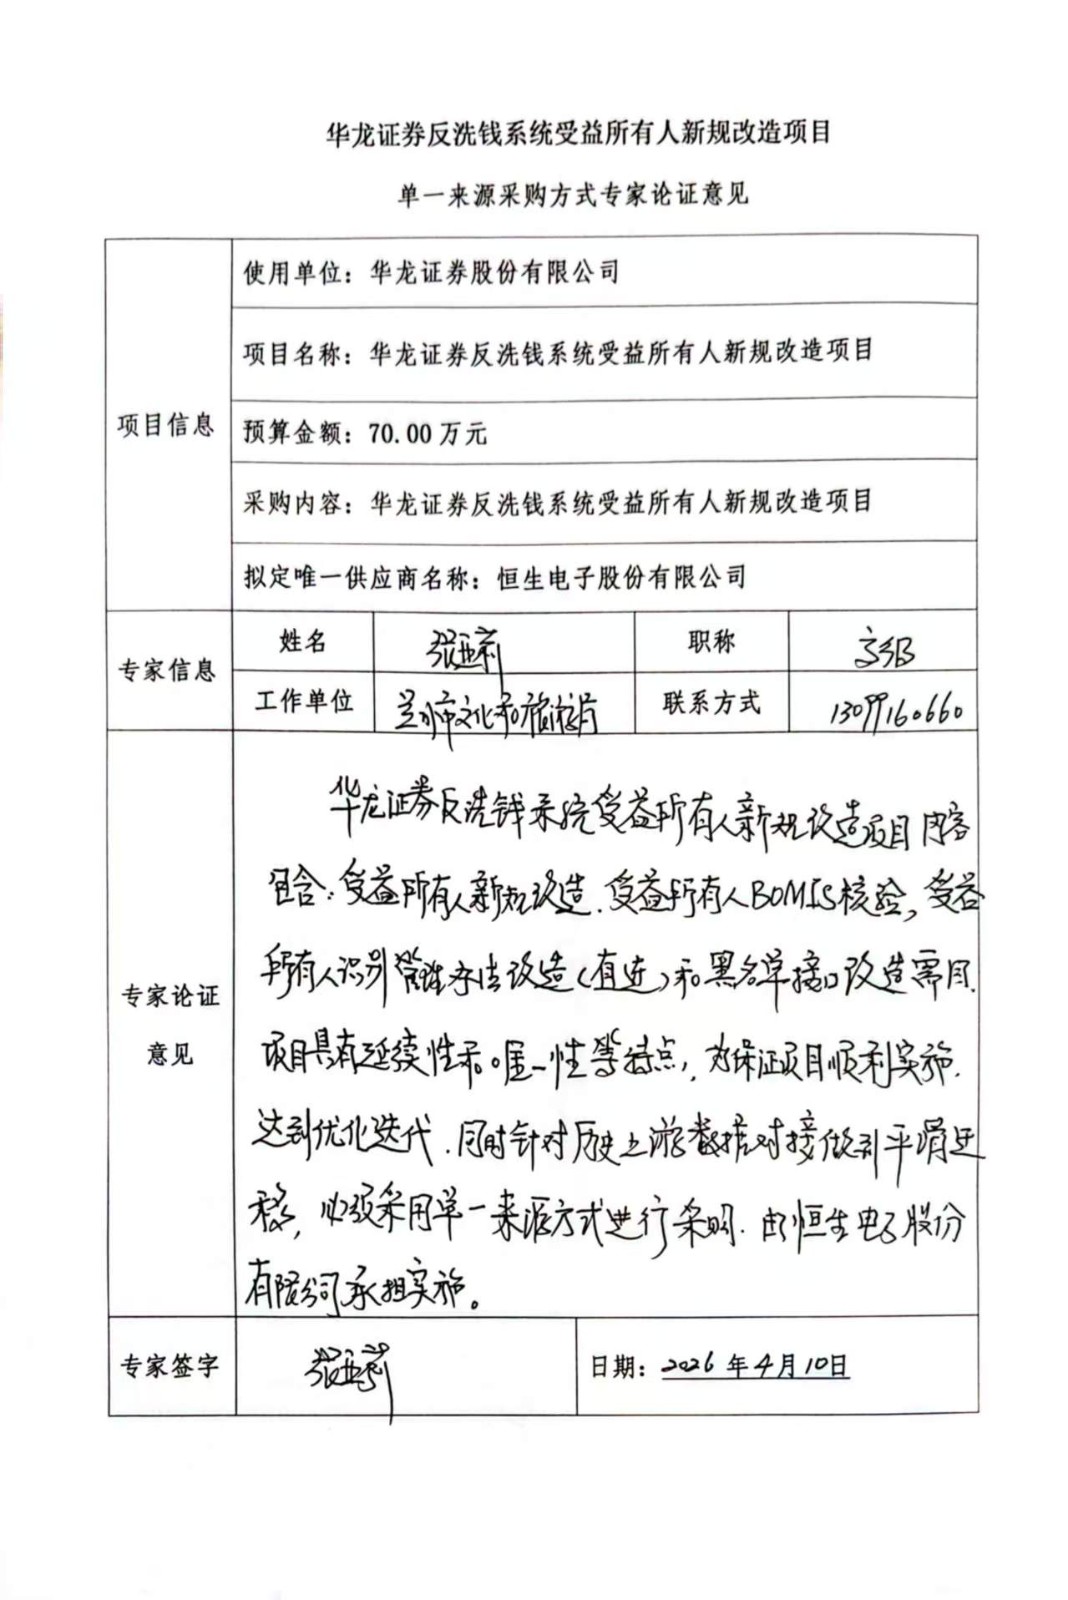 华龙证券反洗钱系统受益所有人新规改造项目
单一来源采购方式专家论证意见
项目信息
使用单位：华龙证券股份有限公司
项目名称：华龙证券反洗钱系统受益所有人新规改造项目
预算金额：70.00万元
采购内容：华龙证券反洗钱系统受益所有人新规改造项目
拟定唯一供应商名称：恒生电子股份有限公司
专家信息
姓名 张亚莉 职称 高级
工作单位 兰州市文化和旅游局 联系方式 13099160660
专家论证
意见
华龙证券反洗钱系统受益所有人新规改造项目内容
包含：受益所有人新规改造、受益所有人BOMIS核验，受益
所有人识别管理办法改造（有迹）和黑名单接口改造需用。
项目具有延续性和唯一性等特点，为保证项目顺利实施，
达到优化迭代，同时针对历史上游数据对接做到平滑迁
移，必须采用单一来源方式进行采购，由恒生电子股份
有限公司承担实施。
专家签字 张亚莉 日期：2026年4月10日